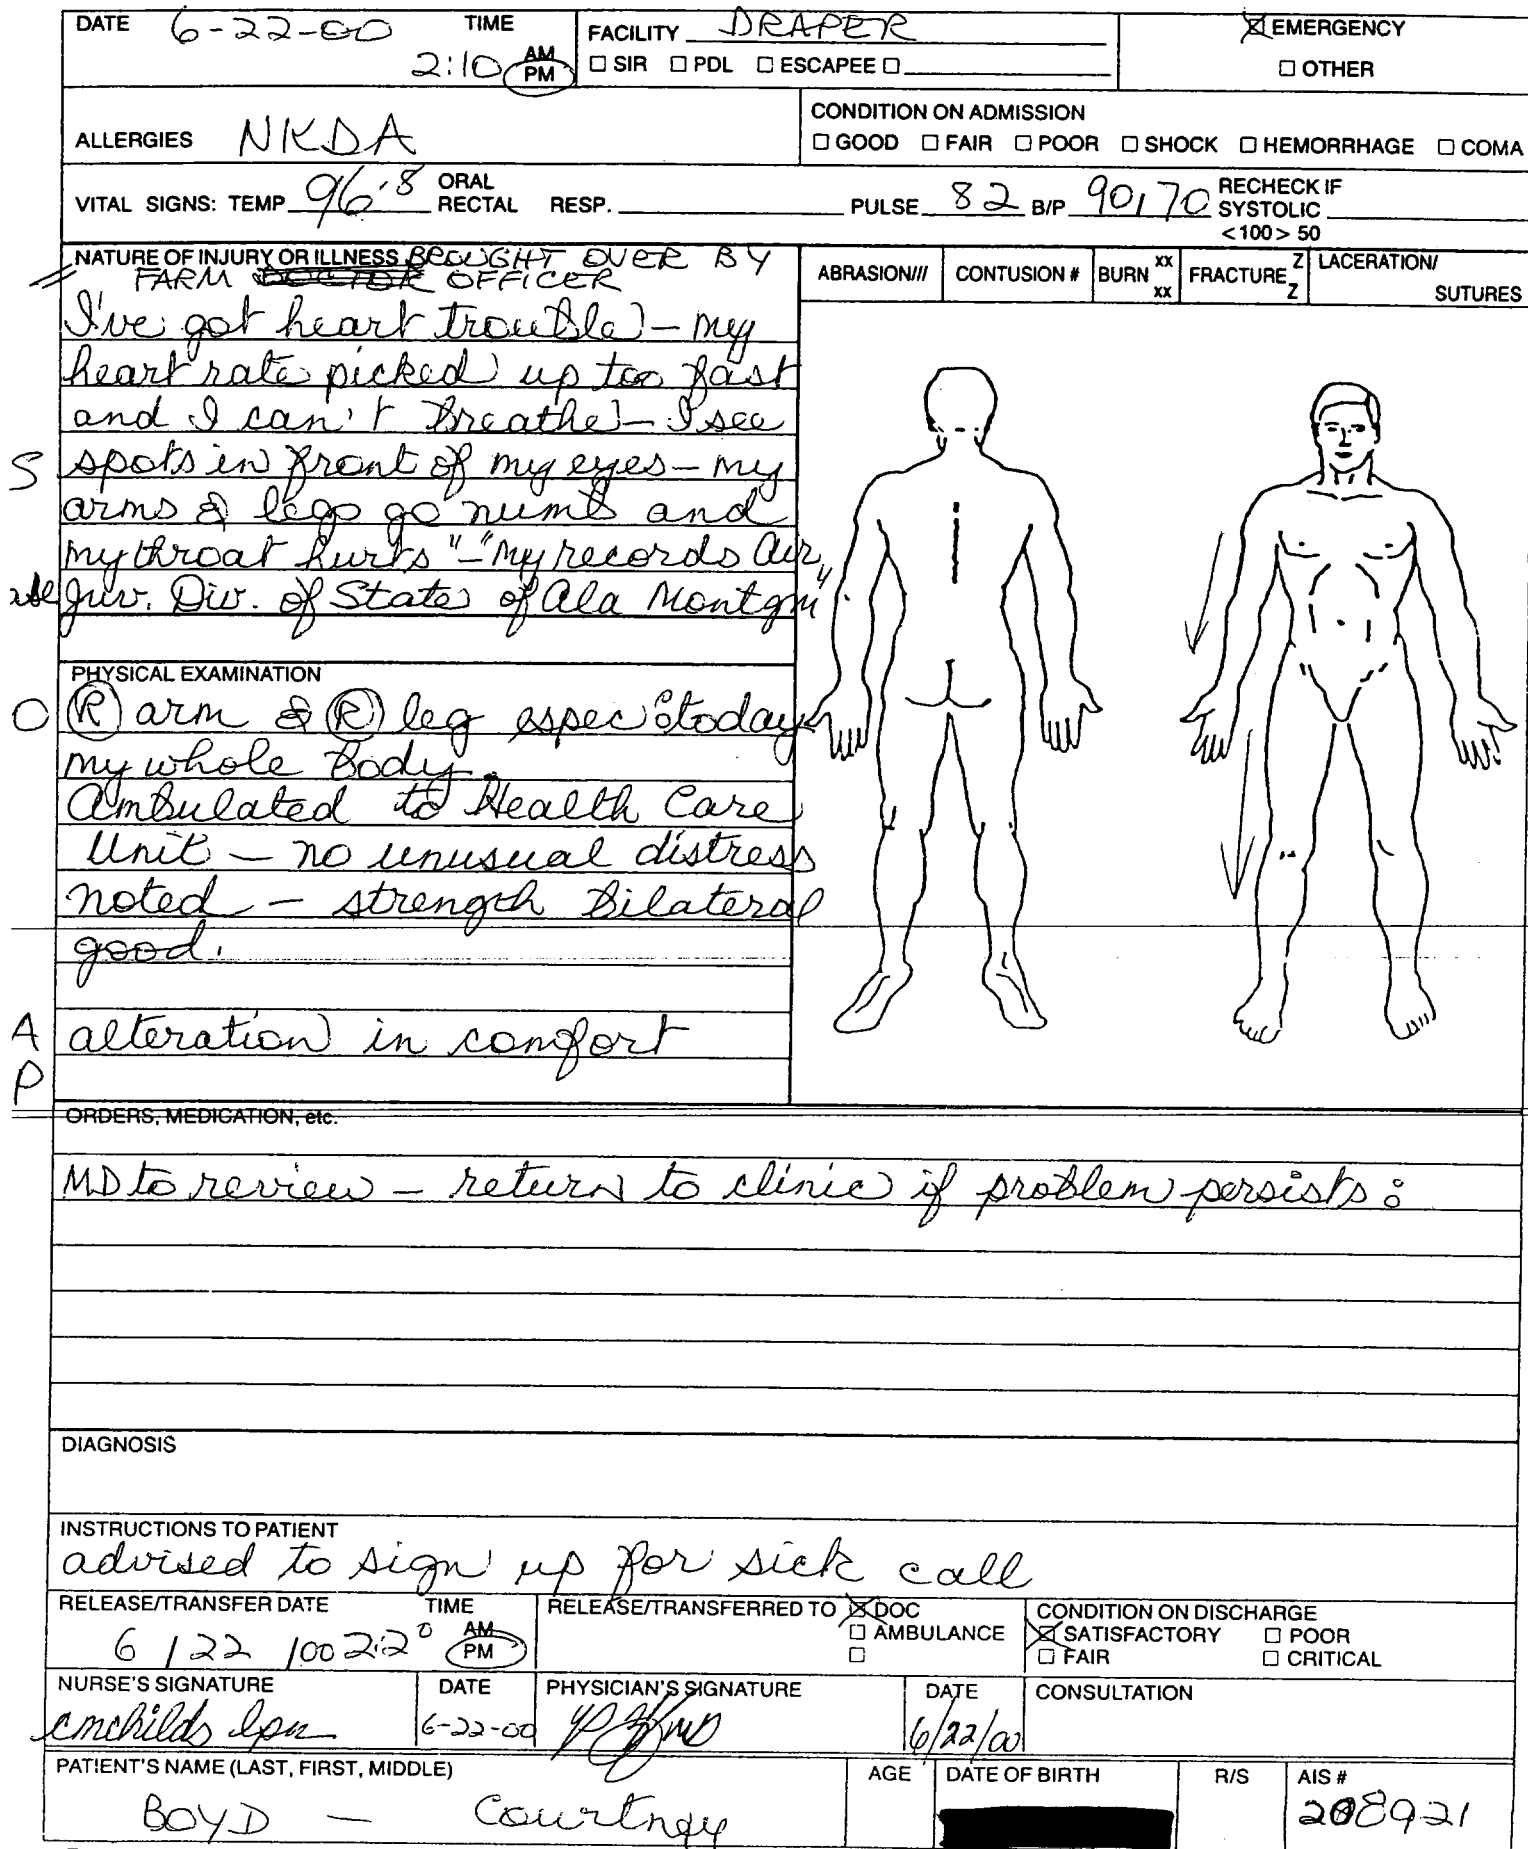 DATE 6-22-00 TIME FACILITY DRAPER ☒ EMERGENCY
2:10 AM PM ☐ SIR ☐ PDL ☐ ESCAPEE ☐ ☐ OTHER
ALLERGIES NKDA CONDITION ON ADMISSION
☐ GOOD ☐ FAIR ☐ POOR ☐ SHOCK ☐ HEMORRHAGE ☐ COMA
VITAL SIGNS: TEMP 96.8 ORAL RECTAL RESP. PULSE 82 B/P 90/70 RECHECK IF SYSTOLIC
<100> 50
NATURE OF INJURY OR ILLNESS BROUGHT OVER BY
FARM OFFICER
ABRASION/// CONTUSION # BURN xx xx FRACTURE Z Z LACERATION/ SUTURES
I've got heart trouble - my
heart rate picked up too fast
and I can't breathe - I see
S spots in front of my eyes - my
arms & legs go numb and
my throat hurts" - "my records
Juv. Div. of State of Ala Montgm"
PHYSICAL EXAMINATION
O (R) arm & (R) leg espec today
my whole body.
Ambulated to Health Care
Unit - no unusual distress
noted - strength bilateral
good.
A alteration in comfort
P
ORDERS, MEDICATION, etc.
MD to review - return to clinic if problem persists
DIAGNOSIS
INSTRUCTIONS TO PATIENT
advised to sign up for sick call
RELEASE/TRANSFER DATE TIME RELEASE/TRANSFERRED TO ☒ DOC CONDITION ON DISCHARGE
6/22/00 2:20 AM PM ☐ AMBULANCE ☒ SATISFACTORY ☐ POOR
☐ ☐ FAIR ☐ CRITICAL
NURSE'S SIGNATURE DATE PHYSICIAN'S SIGNATURE DATE CONSULTATION
cmchilds lpn 6-22-00 MD 6/22/00
PATIENT'S NAME (LAST, FIRST, MIDDLE) AGE DATE OF BIRTH R/S AIS #
BOYD - Courtney 208921